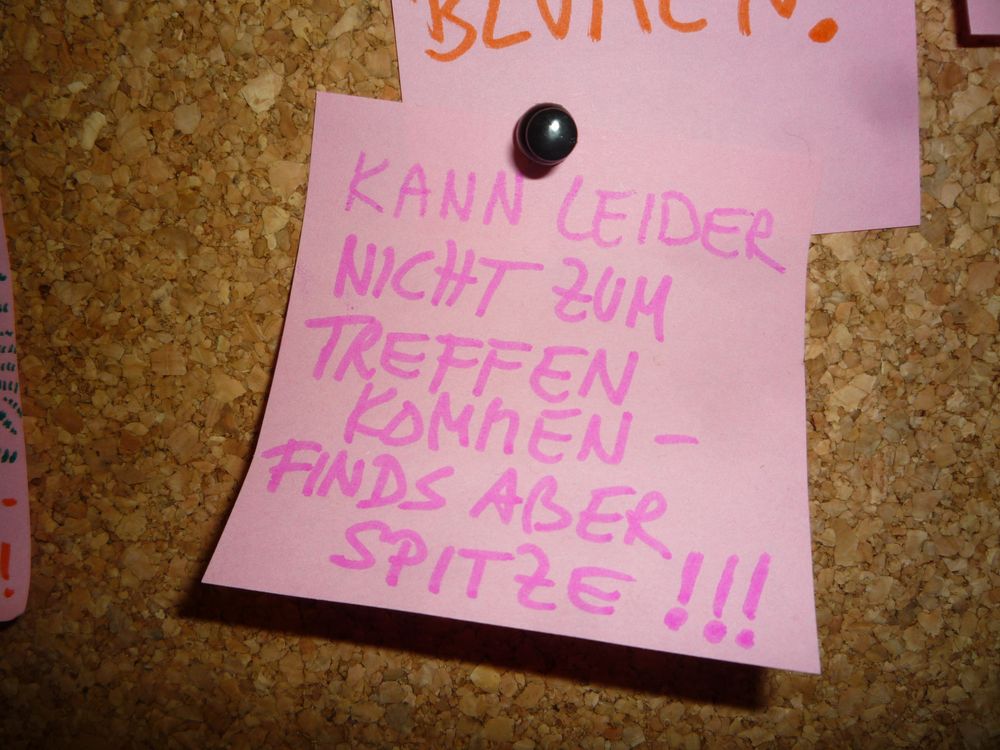 BLUMEN.
KANN LEIDER
NICHT ZUM
TREFFEN
KOMMEN –
FINDS ABER
SPITZE !!!
!